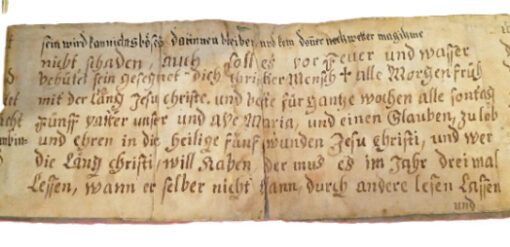 sein wird kan nichts böses darinnen bleiben, und kein doner noch weter mag ihme
nicht schaden, auch soll es vor feuer und wasser
behütet sein gesegnet dich christ Mensch † alle Morgen früh
mit der läng Jesu christe. und bette für gantze wochen alle sontag
fünff vatter unser und ave Maria, und einen Glauben, zu lob
und ehren in die Heilige fünf wunden Jesu christi, und wer
die Läng christi, will Haben, der mus es im Jahr drei mal
Lessen, wann er selber nicht kann, durch andere lesen Lassen
und